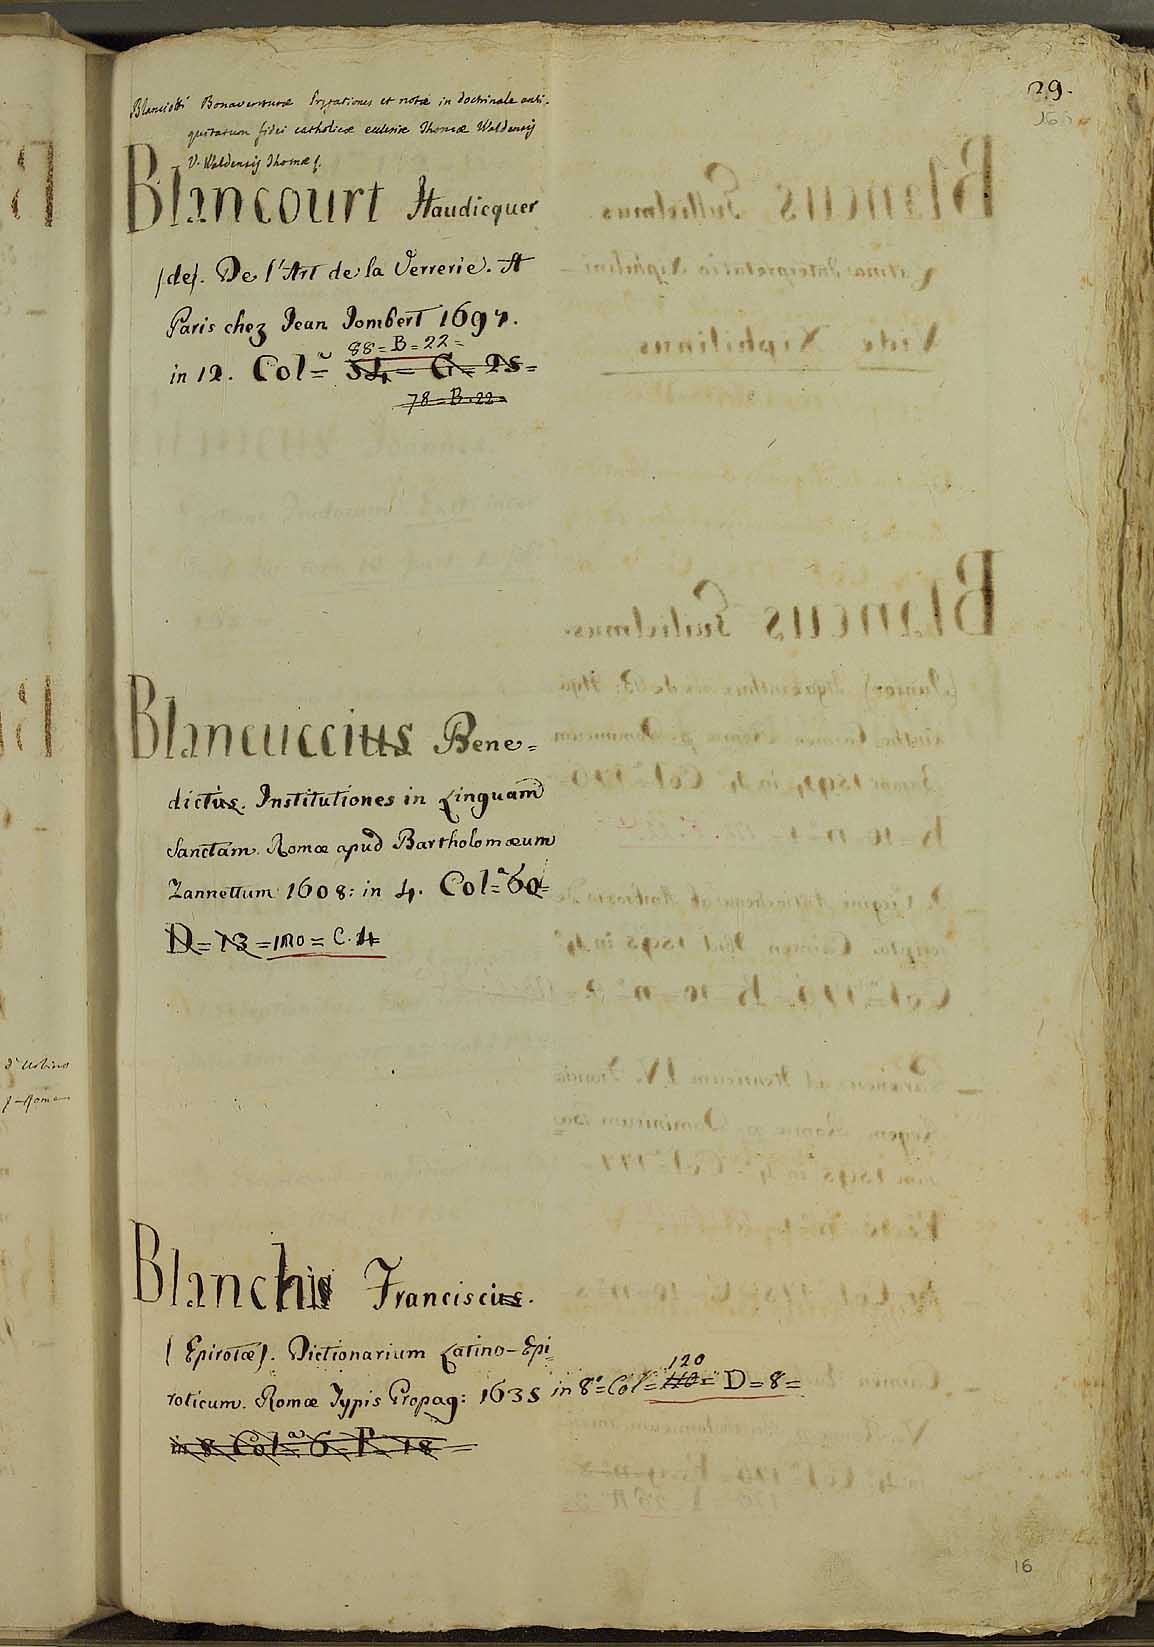 29.
16
Blanciotti Bonaventuræ Præfationes et notæ in doctrinale anti-
quitatum fidei catholicæ ecclesiæ Thomæ Waldensis
V. Waldensis Thomæ.
Blancourt Haudicquer
(de). De l'Art de la Verrerie. A
Paris chez Jean Jombert 1697.
88=B=22=
in 12. Col=ª 54=G=25=
78=B=22=
Blancuccius Bene=
dictus. Institutiones in Linguam
Sanctam. Romæ apud Bartholomæum
Zannettum 1608: in 4. Col=ª 60=
D=13=120=C.4
Blanchis Franciscus.
(Epirotæ). Dictionarium Latino-Epi
120
roticum. Romæ Typis Propag: 1635 in 8º=Col=110=D=8=
in 8 Colª 6=P=18=
d'Urbino
Roma
16